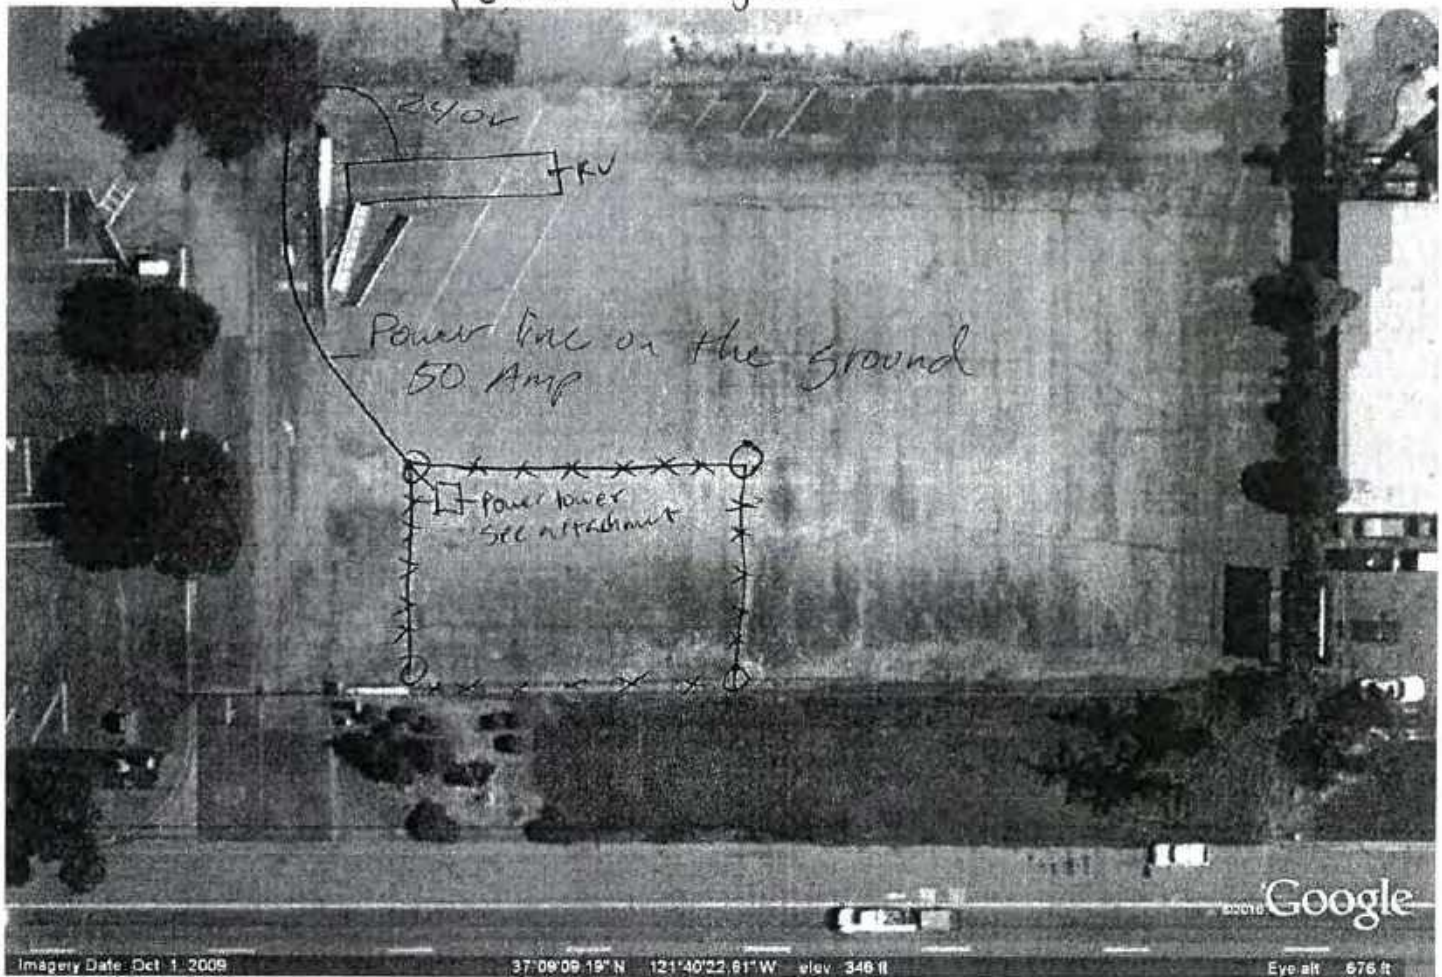 240v
RV
Power line on the ground
50 Amp
Power tower
See attachment
©2010 Google
Imagery Date: Oct 1, 2009 37°09'09.19" N 121°40'22.61" W elev 346 ft Eye alt 676 ft